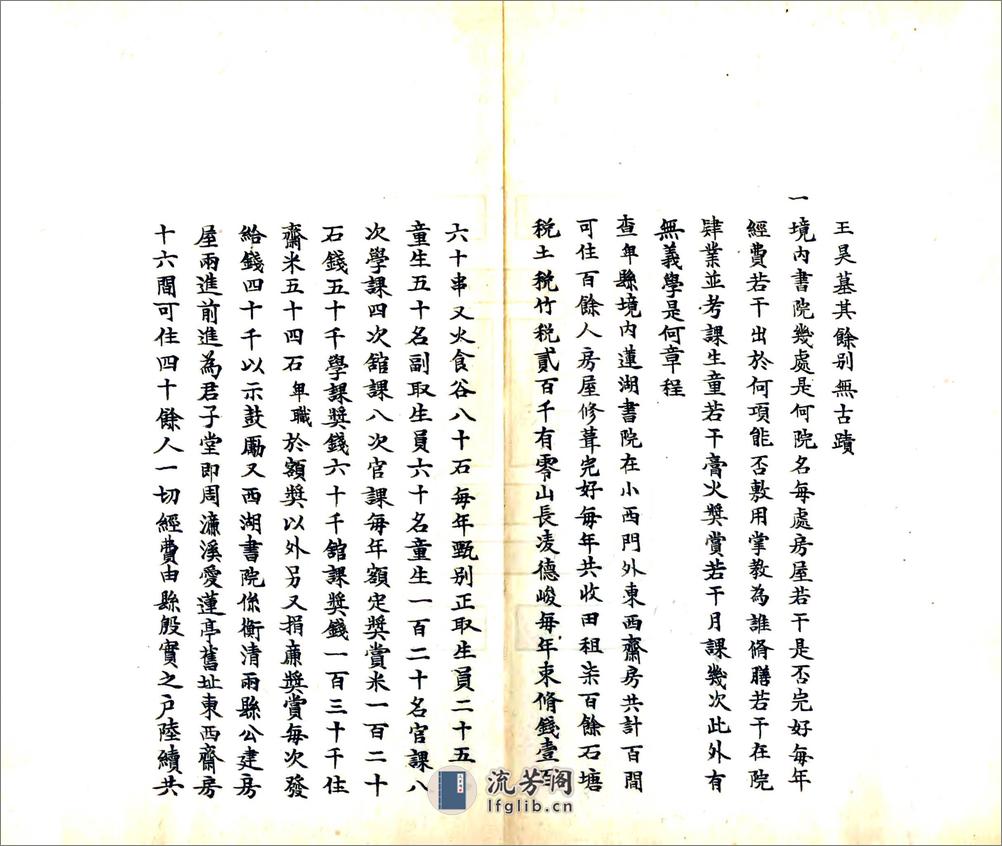 王吴墓其餘别無古蹟
一境内書院幾處是何院名每處房屋若干是否完好每年
經費若干出於何項能否敷用掌教為誰脩膳若干在院
肄業並考課生童若干膏火奬賞若干月課幾次此外有
無義學是何章程
查卑縣境内蓮湖書院在小西門外東西齋房共計百間
可住百餘人房屋修葺完好每年共收田租柒百餘石塘
税土税竹税貳百千有零山長凌德峻每年束脩錢壹百
六十串又火食谷八十石每年甄别正取生員二十五
童生五十名副取生員六十名童生一百二十名官課八
次學課四次舘課八次官課每年額定奬賞米一百二十
石錢五十千學課奬錢六十千舘課奬錢一百三十千住
齋米五十四石卑職於額奬以外另又捐廉奬賞每次發
給錢四十千以示鼓勵又西湖書院係衡清兩縣公建房
屋兩進前進為君子堂即周濂溪愛蓮亭舊址東西齋房
十六間可住四十餘人一切經費由縣殷實之户陸續共
流芳阁
lfglib.cn